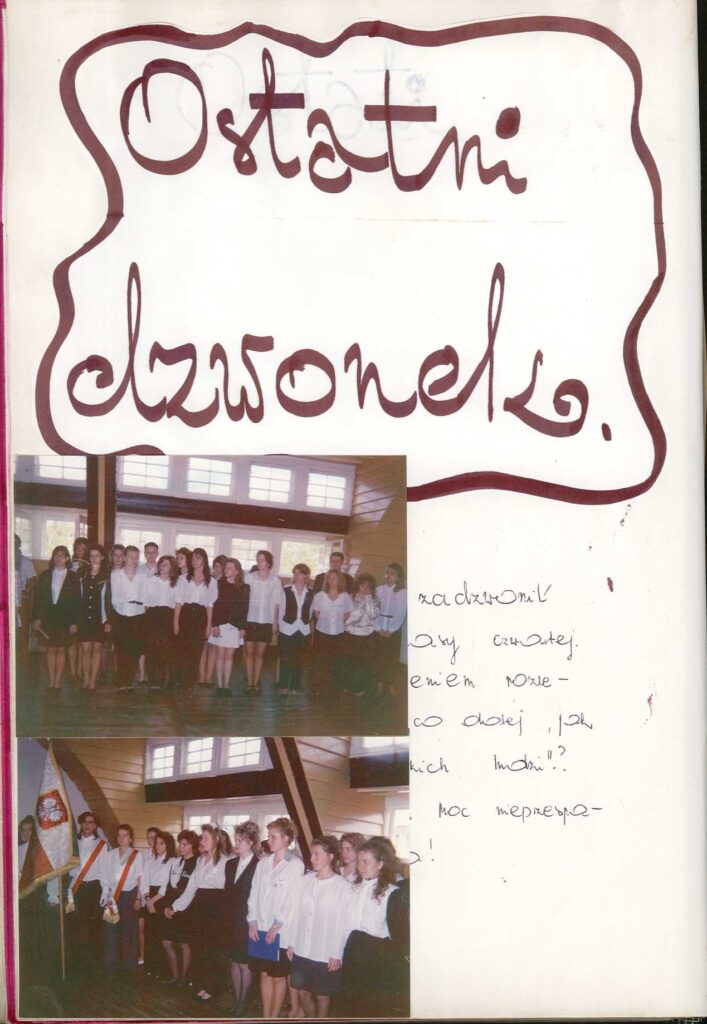 Ostatni
dzwonek.
zadzwonił
asy czwartej.
eniem rozle-
co dalej „jak
kich ludzi"?
moc nieprzespa-
a!